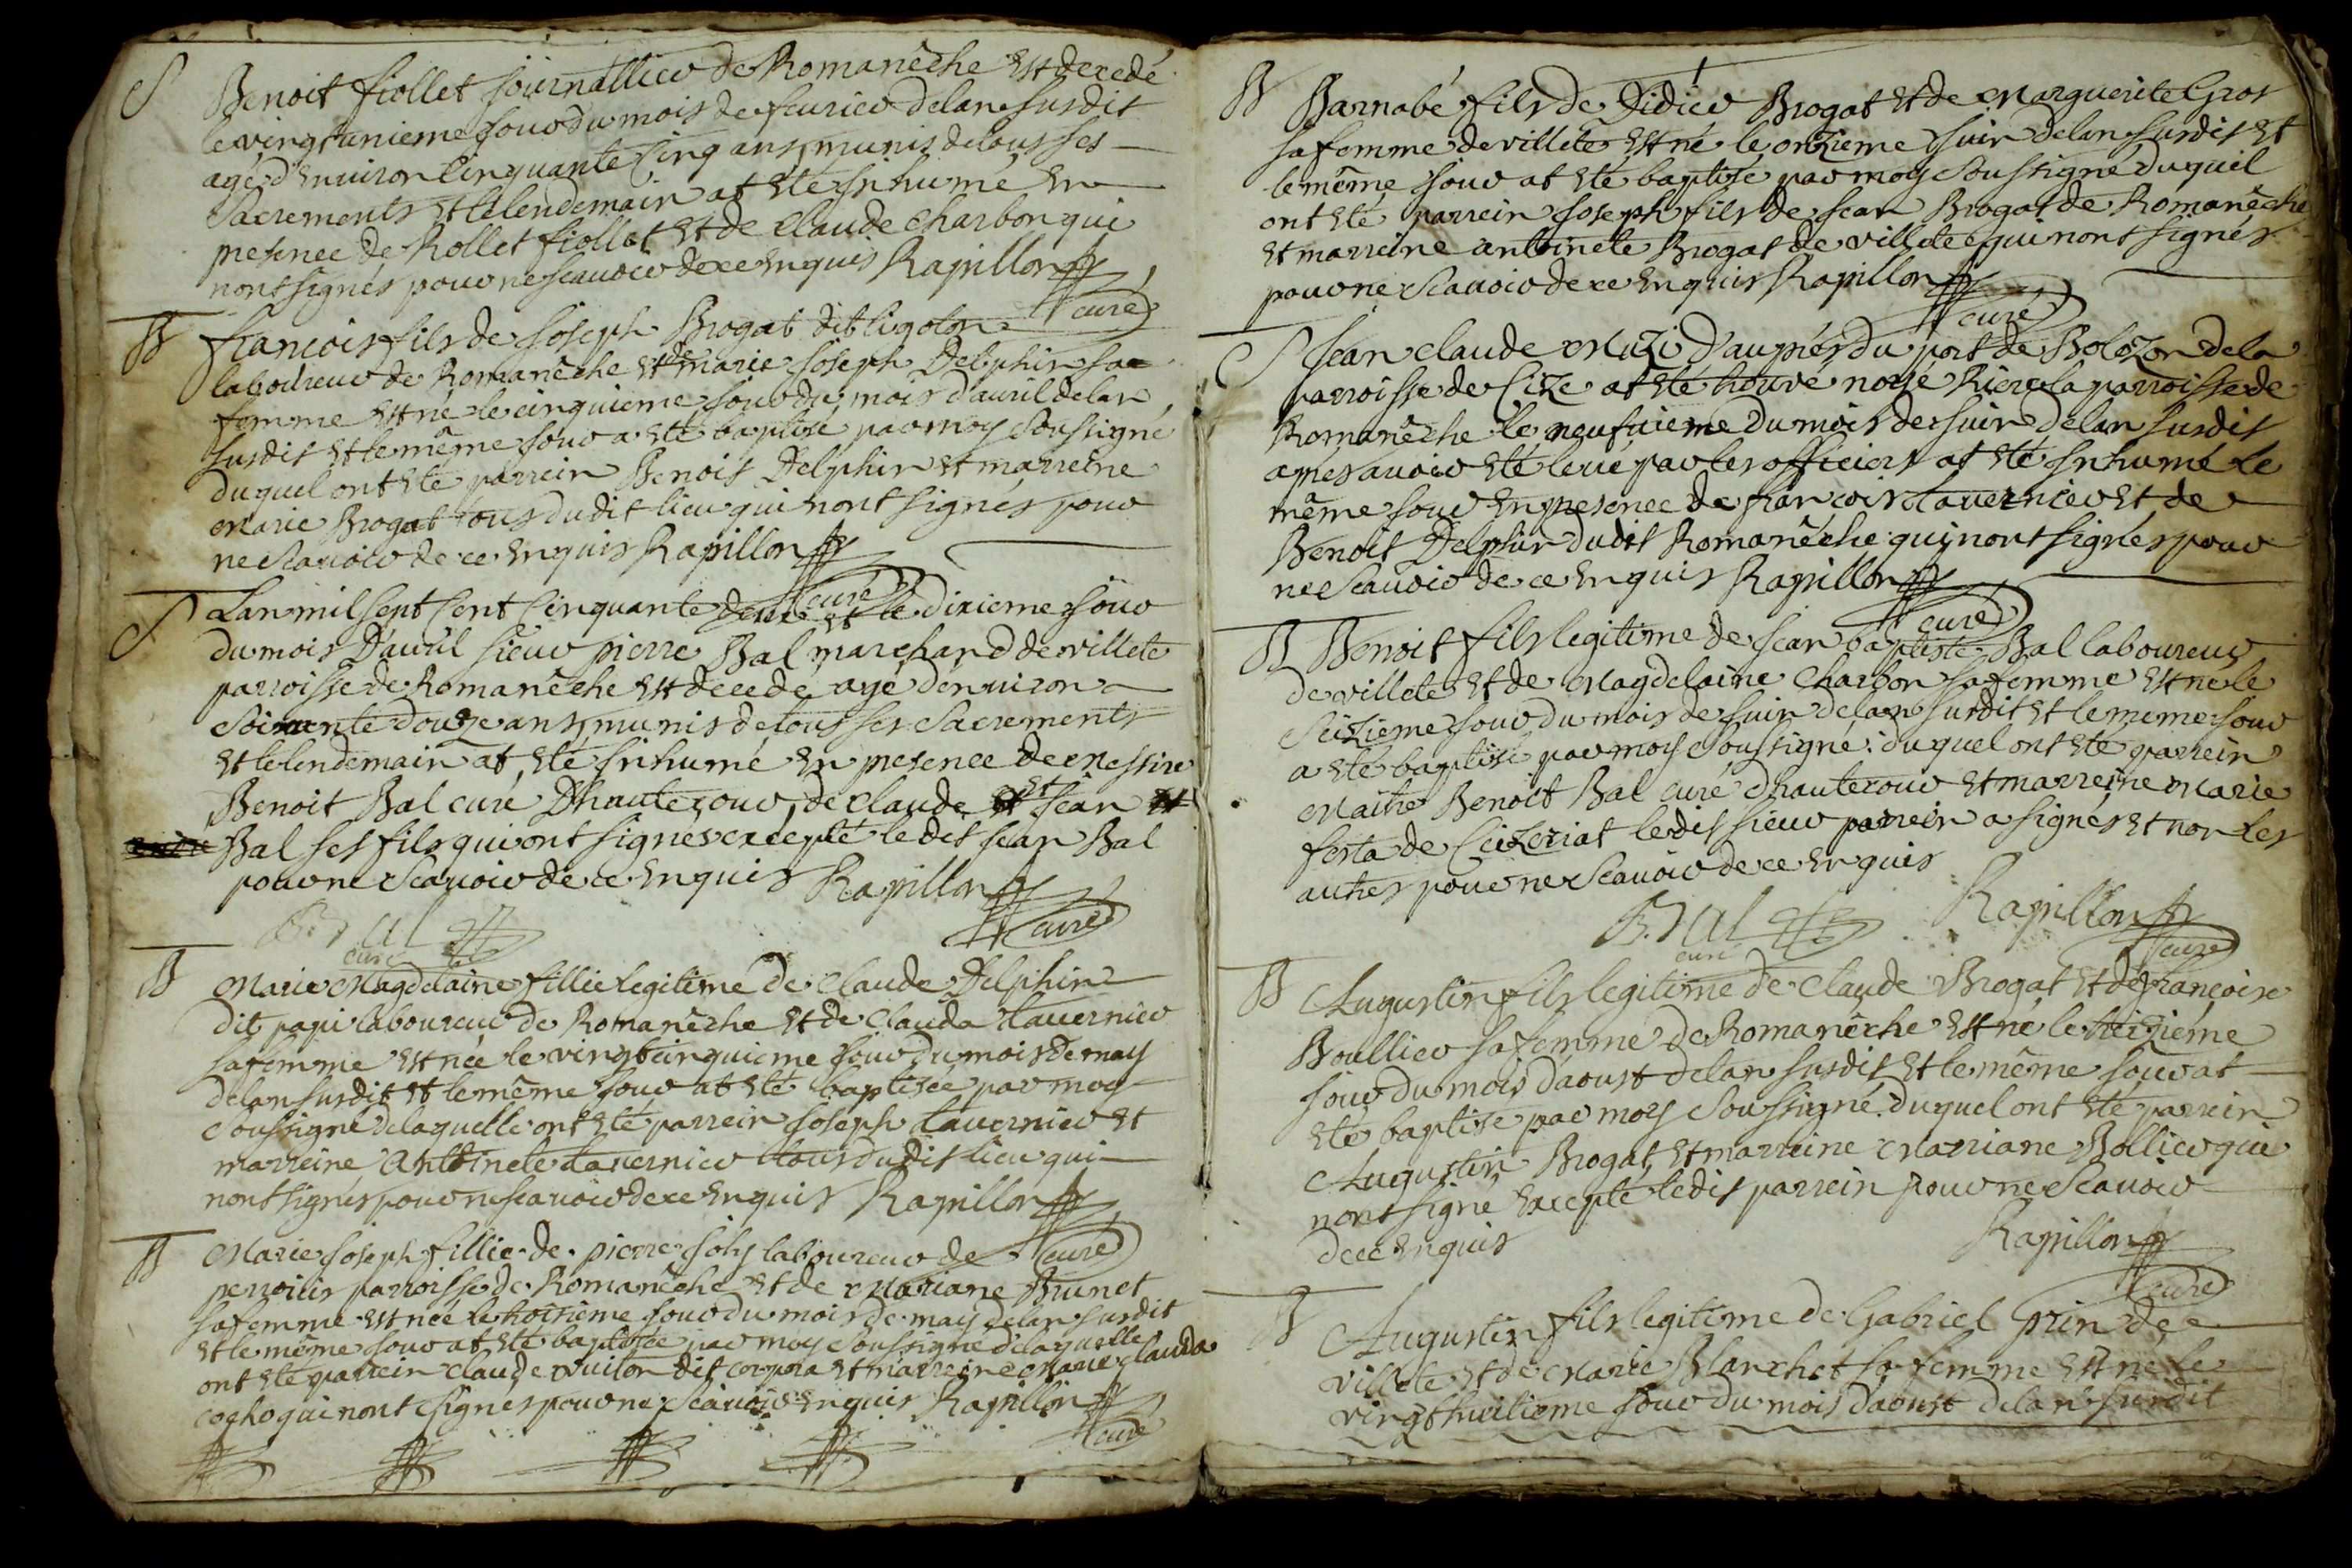 S Benoit fiollet journallier de Romanêche est decedé
le vingtunieme jour du mois de feurier delan susdit
agé d'enuiron cinquante cinq ans, munis de tous ses
sacrements et le lendemain at eté inhumé en
presence de Rollet fiollet et de Claude Charbon qui
nont signés pour ne scauoir de ce enquis Rapillon
curé
B francois fils de joseph Brogat dit ligolon
laboureur de Romanêche et de marie joseph Delphin sa
femme est né le cinquieme jour du mois d'auril delan
susdit et le même jour a eté baptisé par moy soussigné
duquel ont eté parrein Benoit Delphin et marreine
Marie Brogat tous dudit lieu qui nont signés pour
ne scauoir de ce enquis Rapillon
curé
S Lan mil sept cent cinquante deux et le dixieme jour
du mois D'auril sieur pierre Bal marchand de villete
parroisse de Romanêche est decedé agé denuiron
soixante douze ans, munis de tous ses sacrements
et le lendemain at eté inhumé en presence de messire
Benoit Bal curé D'hautecour, de claude et jean
Bal ses fils qui ont signés excepté le dit jean Bal
pour ne scauoir de ce enquis Rapillon
curé
B. Bal
curé
B Marie Magdelaine fillie legitime de claude Delphin
dit papi laboureur de Romanêche et de Clauda tauernier
sa femme est née le vingtcinquieme jour du mois de may
delan susdit et le même jour at eté baptisée par moy
soussigné delaquelle ont eté parrein joseph tauernier et
marreine Antoinete tauernier tous dudit lieu qui
nont signés pour ne scauoir de ce enquis Rapillon
curé
B Marie joseph fillie de pierre joly laboureur de
perroisis parroisse de Romanêche et de Mariane Brunet
sa femme est née le troisieme jour du mois de may delan susdit
et le même jour at eté baptisée par moy soussigné delaquelle
ont eté parrein claude vuiton dit corpora et marreine marie clauda
cocho qui nont signés pour ne scauoir enquis Rapillon
curé
B Barnabé fils de Didier Brogat et de Marguerite Gros
sa femme de villete est né le onzieme juin delan susdit et
le même jour at eté baptisé par moy soussigné duquel
ont eté parrein joseph fils de jean Brogat de Romanêche
et marreine antoinete Brogat de villete qui nont signés
pour ne scauoir de ce enquis Rapillon
curé
S jean claude Muzi d'auprés du port de Bolozon de la
parroisse de Cize at eté trouvé noyé Riere la parroisse de
Romanêche le neufuieme du mois de juin delan susdit
apres auoir eté leué par les officiers at eté inhumé le
même jour en presence de francois tauernier et de
Benoit Delphin dudit Romanêche qui nont signés pour
ne scauoir de ce enquis Rapillon
curé
B Benoit fils legitime de jean baptiste Bal laboureur
de villete et de Magdelaine Charbon sa femme est né le
seizieme jour du mois de juin delan susdit et le meme jour
a eté baptisé par moy soussigné: duquel ont eté parrein
Maitre Benoit Bal curé d'hautecour et marreine Marie
festa de Ceizeriat ledit sieur parrein a signés et non les
autres pour ne scauoir de ce enquis
B. Bal Rapillon
curé curé
B Augustin fils legitime de Claude Brogat et de françoise
Boullier sa femme de Romanêche est né le treizieme
jour du mois d'aoust delan susdit et le même jour at
eté baptisé par moy soussigné. duquel ont eté parrein
Augustin Brogat et marreine Marriane Bollier qui
nont signé excepté ledit parrein pour ne scauoir
de ce enquis Rapillon
curé
B Augustin fils legitime de Gabriel prin de
villete et de Marie Blanchet sa femme est né le
vingthuitieme jour du mois d'aoust delan susdit